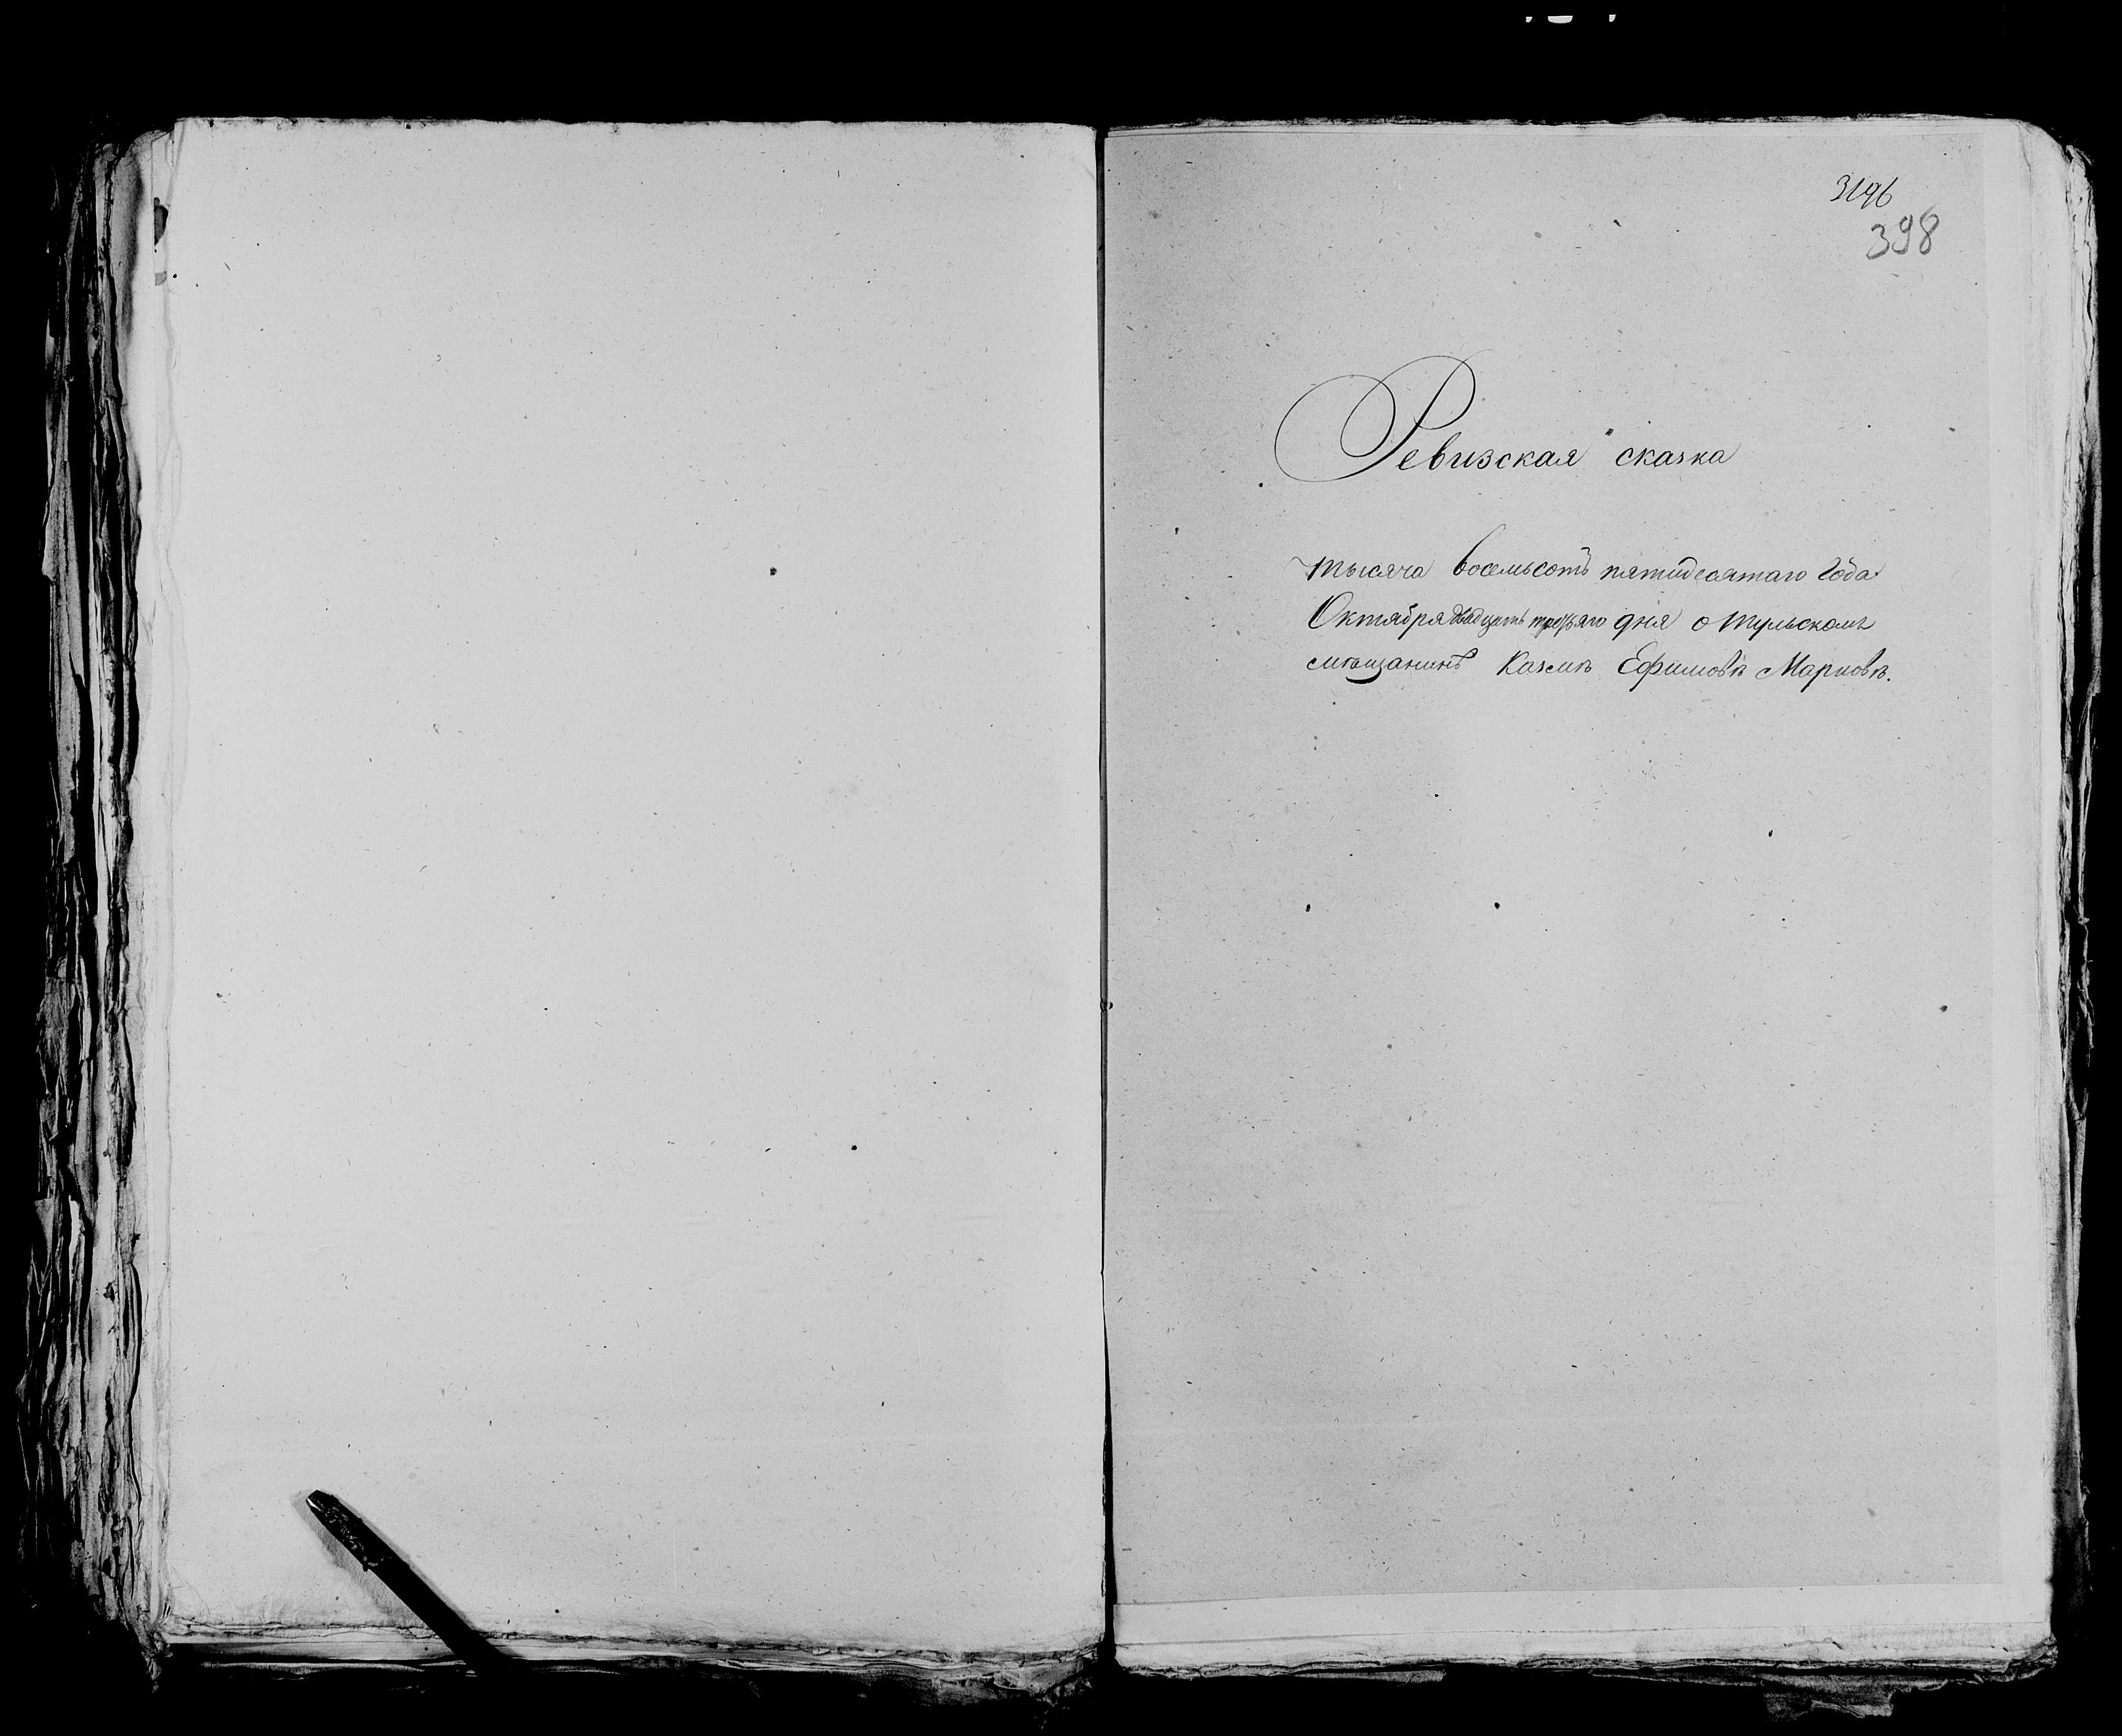 3196
398
Ревизская сказка
Тысяча восемьсотъ пятидесятаго года
Октября двадцать третьяго дня о тульскомъ
мѣщанинѣ Казмѣ Ефимовѣ Марковѣ.